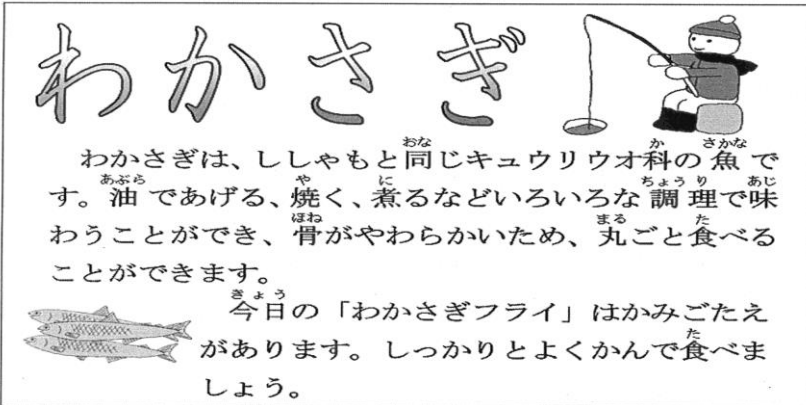 わかさぎ
わかさぎは、ししゃもと同じキュウリウオ科の魚で
す。油であげる、焼く、煮るなどいろいろな調理で味
わうことができ、骨がやわらかいため、丸ごと食べる
ことができます。
今日の「わかさぎフライ」はかみごたえ
があります。しっかりとよくかんで食べま
しょう。